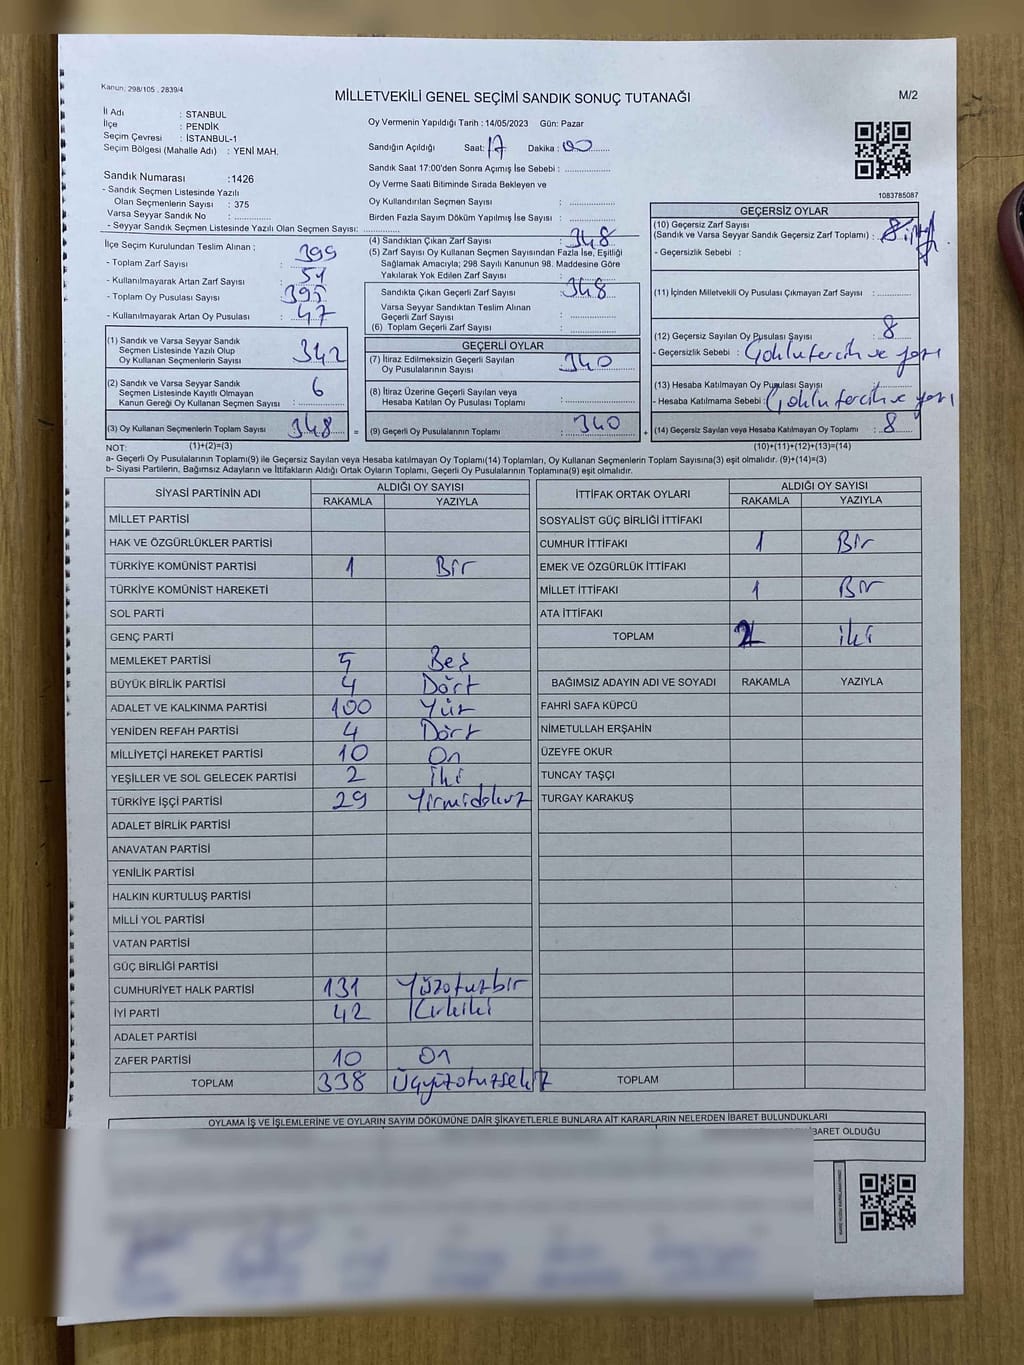 Kanun: 298/105 , 2839/4
MİLLETVEKİLİ GENEL SEÇİMİ SANDIK SONUÇ TUTANAĞI
M/2
İl Adı : STANBUL
İlçe : PENDİK
Seçim Çevresi : İSTANBUL-1
Seçim Bölgesi (Mahalle Adı) : YENİ MAH.
Oy Vermenin Yapıldığı Tarih : 14/05/2023 Gün: Pazar
Sandığın Açıldığı Saat: 17 Dakika : 00
Sandık Saat 17:00'den Sonra Açımış İse Sebebi :
Oy Verme Saati Bitiminde Sırada Bekleyen ve
Oy Kullandırılan Seçmen Sayısı :
Birden Fazla Sayım Döküm Yapılmış İse Sayısı :
1083785087
Sandık Numarası :1426
- Sandık Seçmen Listesinde Yazılı
Olan Seçmenlerin Sayısı : 375
Varsa Seyyar Sandık No :
- Seyyar Sandık Seçmen Listesinde Yazılı Olan Seçmen Sayısı:
İlçe Seçim Kurulundan Teslim Alınan ;
- Toplam Zarf Sayısı : 399
- Kullanılmayarak Artan Zarf Sayısı : 51
- Toplam Oy Pusulası Sayısı : 395
- Kullanılmayarak Artan Oy Pusulası : 47
(1) Sandık ve Varsa Seyyar Sandık
Seçmen Listesinde Yazılı Olup
Oy Kullanan Seçmenlerin Sayısı : 342
(2) Sandık ve Varsa Seyyar Sandık
Seçmen Listesinde Kayıtlı Olmayan
Kanun Gereği Oy Kullanan Seçmen Sayısı : 6
(3) Oy Kullanan Seçmenlerin Toplam Sayısı : 348
(4) Sandıktan Çıkan Zarf Sayısı : 348
(5) Zarf Sayısı Oy Kullanan Seçmen Sayısından Fazla İse, Eşitliği
Sağlamak Amacıyla; 298 Sayılı Kanunun 98. Maddesine Göre
Yakılarak Yok Edilen Zarf Sayısı :
Sandıkta Çıkan Geçerli Zarf Sayısı : 348
Varsa Seyyar Sandıktan Teslim Alınan
Geçerli Zarf Sayısı :
(6) Toplam Geçerli Zarf Sayısı :
GEÇERLİ OYLAR
(7) İtiraz Edilmeksizin Geçerli Sayılan
Oy Pusulalarının Sayısı : 340
(8) İtiraz Üzerine Geçerli Sayılan veya
Hesaba Katılan Oy Pusulası Toplamı :
= (9) Geçerli Oy Pusulalarının Toplamı : 340 +
GEÇERSİZ OYLAR
(10) Geçersiz Zarf Sayısı
(Sandık ve Varsa Seyyar Sandık Geçersiz Zarf Toplamı) :
- Geçersizlik Sebebi :
(11) İçinden Milletvekili Oy Pusulası Çıkmayan Zarf Sayısı :
(12) Geçersiz Sayılan Oy Pusulası Sayısı : 8
- Geçersizlik Sebebi : Çoklu tercih ve yazı
(13) Hesaba Katılmayan Oy Pusulası Sayısı :
- Hesaba Katılmama Sebebi : Çoklu tercih ve yazı
(14) Geçersiz Sayılan veya Hesaba Katılmayan Oy Toplamı : 8
NOT: (1)+(2)=(3) (10)+(11)+(12)+(13)=(14)
a- Geçerli Oy Pusulalarının Toplamı(9) ile Geçersiz Sayılan veya Hesaba Katılmayan Oy Toplamı(14) Toplamları, Oy Kullanan Seçmenlerin Toplam Sayısına(3) eşit olmalıdır. (9)+(14)=(3)
b- Siyasi Partilerin, Bağımsız Adayların ve İttifakların Aldığı Ortak Oyların Toplamı, Geçerli Oy Pusulalarının Toplamına(9) eşit olmalıdır.
SİYASİ PARTİNİN ADI ALDIĞI OY SAYISI
RAKAMLA YAZIYLA
MİLLET PARTİSİ
HAK VE ÖZGÜRLÜKLER PARTİSİ
TÜRKİYE KOMÜNİST PARTİSİ 1 Bir
TÜRKİYE KOMÜNİST HAREKETİ
SOL PARTİ
GENÇ PARTİ
MEMLEKET PARTİSİ 5 Beş
BÜYÜK BİRLİK PARTİSİ 4 Dört
ADALET VE KALKINMA PARTİSİ 100 Yüz
YENİDEN REFAH PARTİSİ 4 Dört
MİLLİYETÇİ HAREKET PARTİSİ 10 On
YEŞİLLER VE SOL GELECEK PARTİSİ 2 İki
TÜRKİYE İŞÇİ PARTİSİ 29 Yirmidokuz
ADALET BİRLİK PARTİSİ
ANAVATAN PARTİSİ
YENİLİK PARTİSİ
HALKIN KURTULUŞ PARTİSİ
MİLLİ YOL PARTİSİ
VATAN PARTİSİ
GÜÇ BİRLİĞİ PARTİSİ
CUMHURİYET HALK PARTİSİ 131 Yüzotuzbir
İYİ PARTİ 42 Kırkiki
ADALET PARTİSİ
ZAFER PARTİSİ 10 On
TOPLAM 338 Üçyüzotuzsekiz
İTTİFAK ORTAK OYLARI ALDIĞI OY SAYISI
RAKAMLA YAZIYLA
SOSYALİST GÜÇ BİRLİĞİ İTTİFAKI
CUMHUR İTTİFAKI 1 Bir
EMEK VE ÖZGÜRLÜK İTTİFAKI
MİLLET İTTİFAKI 1 Bir
ATA İTTİFAKI
TOPLAM 2 iki
BAĞIMSIZ ADAYIN ADI VE SOYADI RAKAMLA YAZIYLA
FAHRİ SAFA KÜPCÜ
NİMETULLAH ERŞAHİN
ÜZEYFE OKUR
TUNCAY TAŞÇI
TURGAY KARAKUŞ
TOPLAM
OYLAMA İŞ VE İŞLEMLERİNE VE OYLARIN SAYIM DÖKÜMÜNE DAİR ŞİKAYETLERLE BUNLARA AİT KARARLARIN NELERDEN İBARET BULUNDUKLARI
İBARET OLDUĞU